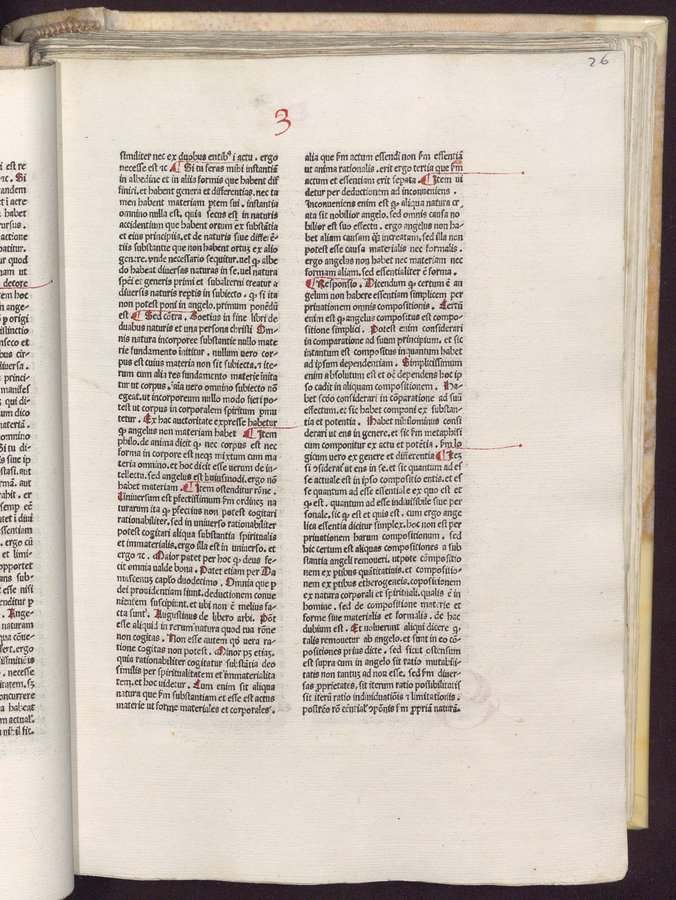 26
3
similiter nec ex duobus entibꝰ i actu. ergo
necesse est ⁊c. ¶ Si tu feras mihi instantiā
in albedine et in aliis formis que habent dif
finiri, et habent genera et differentias, nec ta
men habent materiam ptem sui. instantia
omnino nulla est, quia secus est in naturis
accidentium que habent ortum ex substātia
et eius principiis, et de naturis siue differētiis
tiis substantie que non habent ortuȝ ex alio
genere. vnde necessario sequitur. vel ꝙ albe
do habeat diuersas naturas in se. vel natura
spēi et generis primi et subalterni creatur a
diuersis naturis reptis in subiecto. ꝙ si ita
non potest poni in angelo, primum ponēdū
est ¶ Sed cōtra. Boetius in fine libri de
duabus naturis et una persona christi Om
nis natura incorporee substantie nullo mate
rie fundamento īnititur. nullum uero cor-
pus est cuius materia non sit subiecta. ⁊ ite
rum cum alia res fundamento materie inita
tur ut corpus. ꝛalia uero omnino subiecto nō
egeat. ut incorporeum nullo modo fieri po-
test ut corpus in corporalem spiritum pmu
tetur. Ex hac auctoritate expresse habetur
ꝙ angelus non materiam habet ¶ Item
philo. de anima dicit ꝙ nec corpus est nec
forma in corpore est neqȝ mixtum cum ma
teria omnino. et hoc dicit esse uerum de in-
tellectu. sed angelus est huiusmodi. ergo nō
habet materiam. ¶ Item ostenditur rōne.
Uniuersum est pfectissimum fm ordineȝ na
turarum ita ꝙ pfectius non potest cogitari
rationabiliter. sed in uniuerso rationabiliter
potest cogitari aliqua substantia spiritualis
et immaterialis. ergo illa est in uniuerso. et
ergo ⁊c. Maior patet per hoc ꝙ deus fe-
cit omnia valde bona. Patet etiam per Da
mascenuȝ caplo duodecimo. Omnia que p
dei prouidentiam fiunt. deductionem conue
nientem suscipiunt. et ubi non ē melius fa-
cta sunt. Augustinus de libero arbi. Pōt
esse aliquid in rerum natura quod tua rōne
non cogitas. Non esse autem qd uera ra-
tione cogitas non potest. Minor pȝ etiaȝ.
quia rationabiliter cogitatur substātia deo
similis per spiritualitatem et immaterialita
tem. et hoc videtur. Cum enim sit aliqua
natura que fm substantiam et esse est actus
materie ut forme materiales et corporales.
alia que fm actum essendi non fm essentiā
ut anima rationalis. erit ergo tertia que fm
actum et essentiam erit sepata. ¶ Item ui
detur per deductionem ad inconueniens.
Inconueniens enim est ꝙ aliqua natura cr-
ata sit nobilior angelo. sed omnis causa no
bilior est suo effectu. ergo angelus non ha-
bet aliam causam ꝙ increatam. sed illa non
potest esse causa materialis nec formalis.
ergo angelus non habet nec materiam nec
formam aliam. sed essentialiter ē forma.
¶ Responsio. Dicendum ꝙ certum ē an
gelum non habere essentiam simplicem per
priuationem omnis compositionis. Certū
enim est ꝙ angelus compositus est compo-
sitione simplici. Potest enim considerari
in comparatione ad suum principium. et sic
intantum est compositus inquantum habet
ad ipsum dependentiam. Simplicissimum
enim absolutum est et oē dependens hoc ip
so cadit in aliquam compositionem. Ha-
bet scdo considerari in cōparatione ad suū
effectum. et sic habet componi ex substan-
tia et potentia. Habet nihilominus consi
derari ut ens in genere. et sic fm metaphisi
cum componitur ex actu et potētia. fm lo
gicum vero ex genere et differentia ¶ Iteȝ
si ꝯsideraſ ut ens in se. et sic quantum ad es
se actuale est in ipso compositio entis. et es
se quantum ad esse essentiale ex quo est et
ꝙ est. quantum ad esse indiuisibile siue per
sonale. sic ꝙ est et quis est. cum ergo ange
lica essentia dicitur simplex. hoc non est per
priuationem harum compositionum. sed
hic certum est aliquas compositiones a sub
stantia angeli remoueri. utpote cōmpositio
nem ex ptibus quātitatiuis. et compositio-
nem ex ptibus etherogeneis. cōpositionem
ex natura corporali et spirituali. qualis ē in
homine. sed de compositione materie et
forme siue materialis et formalis. de hac
dubium est. Et uoluerunt aliqui dicere ꝙ
talis remouetur ab angelo. et sunt in eo cō-
positiones prius dicte. sed sicut ostensum
est supra cum in angelo sit ratio mutabili-
tatis non tantuȝ ad non esse. sed fm diuer
sas pprietates. sit iterum ratio possibilitatis
sit iterū ratio indiuiduatiōis ⁊ limitatiōnis.